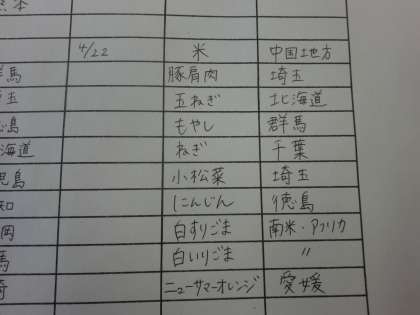 熊本
4/22 米 中国地方
群馬 豚肩肉 埼玉
埼玉 玉ねぎ 北海道
徳島 もやし 群馬
北海道 ねぎ 千葉
鹿児島 小松菜 埼玉
知 にんじん 徳島
岡 白すりごま 南米・アフリカ
馬 白いりごま 〃
崎 ニューサマーオレンジ 愛媛